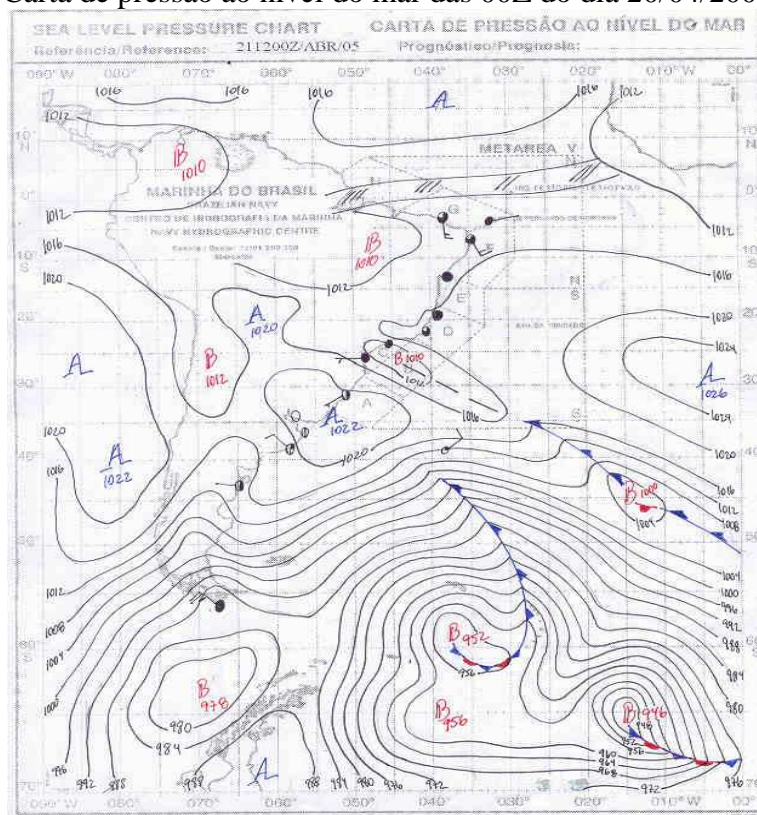 Carta de pressão ao nível do mar das 00Z do dia 20/04/200
SEA LEVEL PRESSURE CHART CARTA DE PRESSÃO AO NÍVEL DO MAR
Referência/Reference: 211200Z/ABR/05 Prognóstico/Prognosis:
090°W 070° 060° 050° 040° 030° 020° 010°W 00°
1016 1016 1016 A 1016 1012
1012
10° N
B 1010
METAREA V
MARINHA DO BRASIL
BRAZILIAN NAVY
CENTRO DE HIDROGRAFIA DA MARINHA
NAVY HYDROGRAPHIC CENTRE
1012 1012
B 1010
1016 1012 1016
1020 A 1020 1020
B 1012 B 1010 1012 1024
A A 1026
A 1022 1016 1024
1020 A 1022 1020 1020
1016 1016
B 1000 1012
1004 1008
1012 1004
1000
1008 996
992
1004 B 952 988
956 984
B 978 B 956 B 946 980
980 948
984 952
956
960
964
968
996 992 988 988 A 988 984 980 976 972 972 976
090°W 080° 070° 060° 050° 040° 030° 020° 010°W 00°